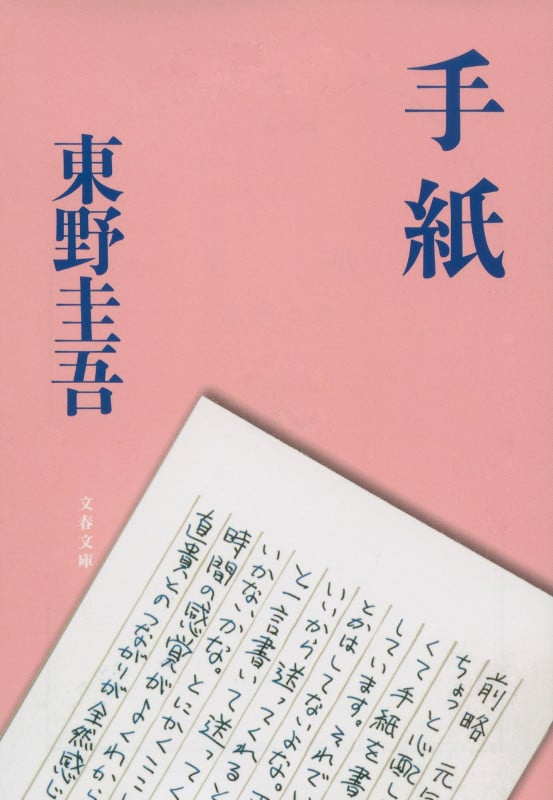 手紙
東野圭吾
文春文庫
前略 元
ちょっと心配し
くて手紙を書
しています。それでい
とかはしてないよな。
いいから送ってくれ
と一言書いて送って
いかないかな。とにかくここ
時間の感覚がよくわから
直貴とのつながりが全然感じ